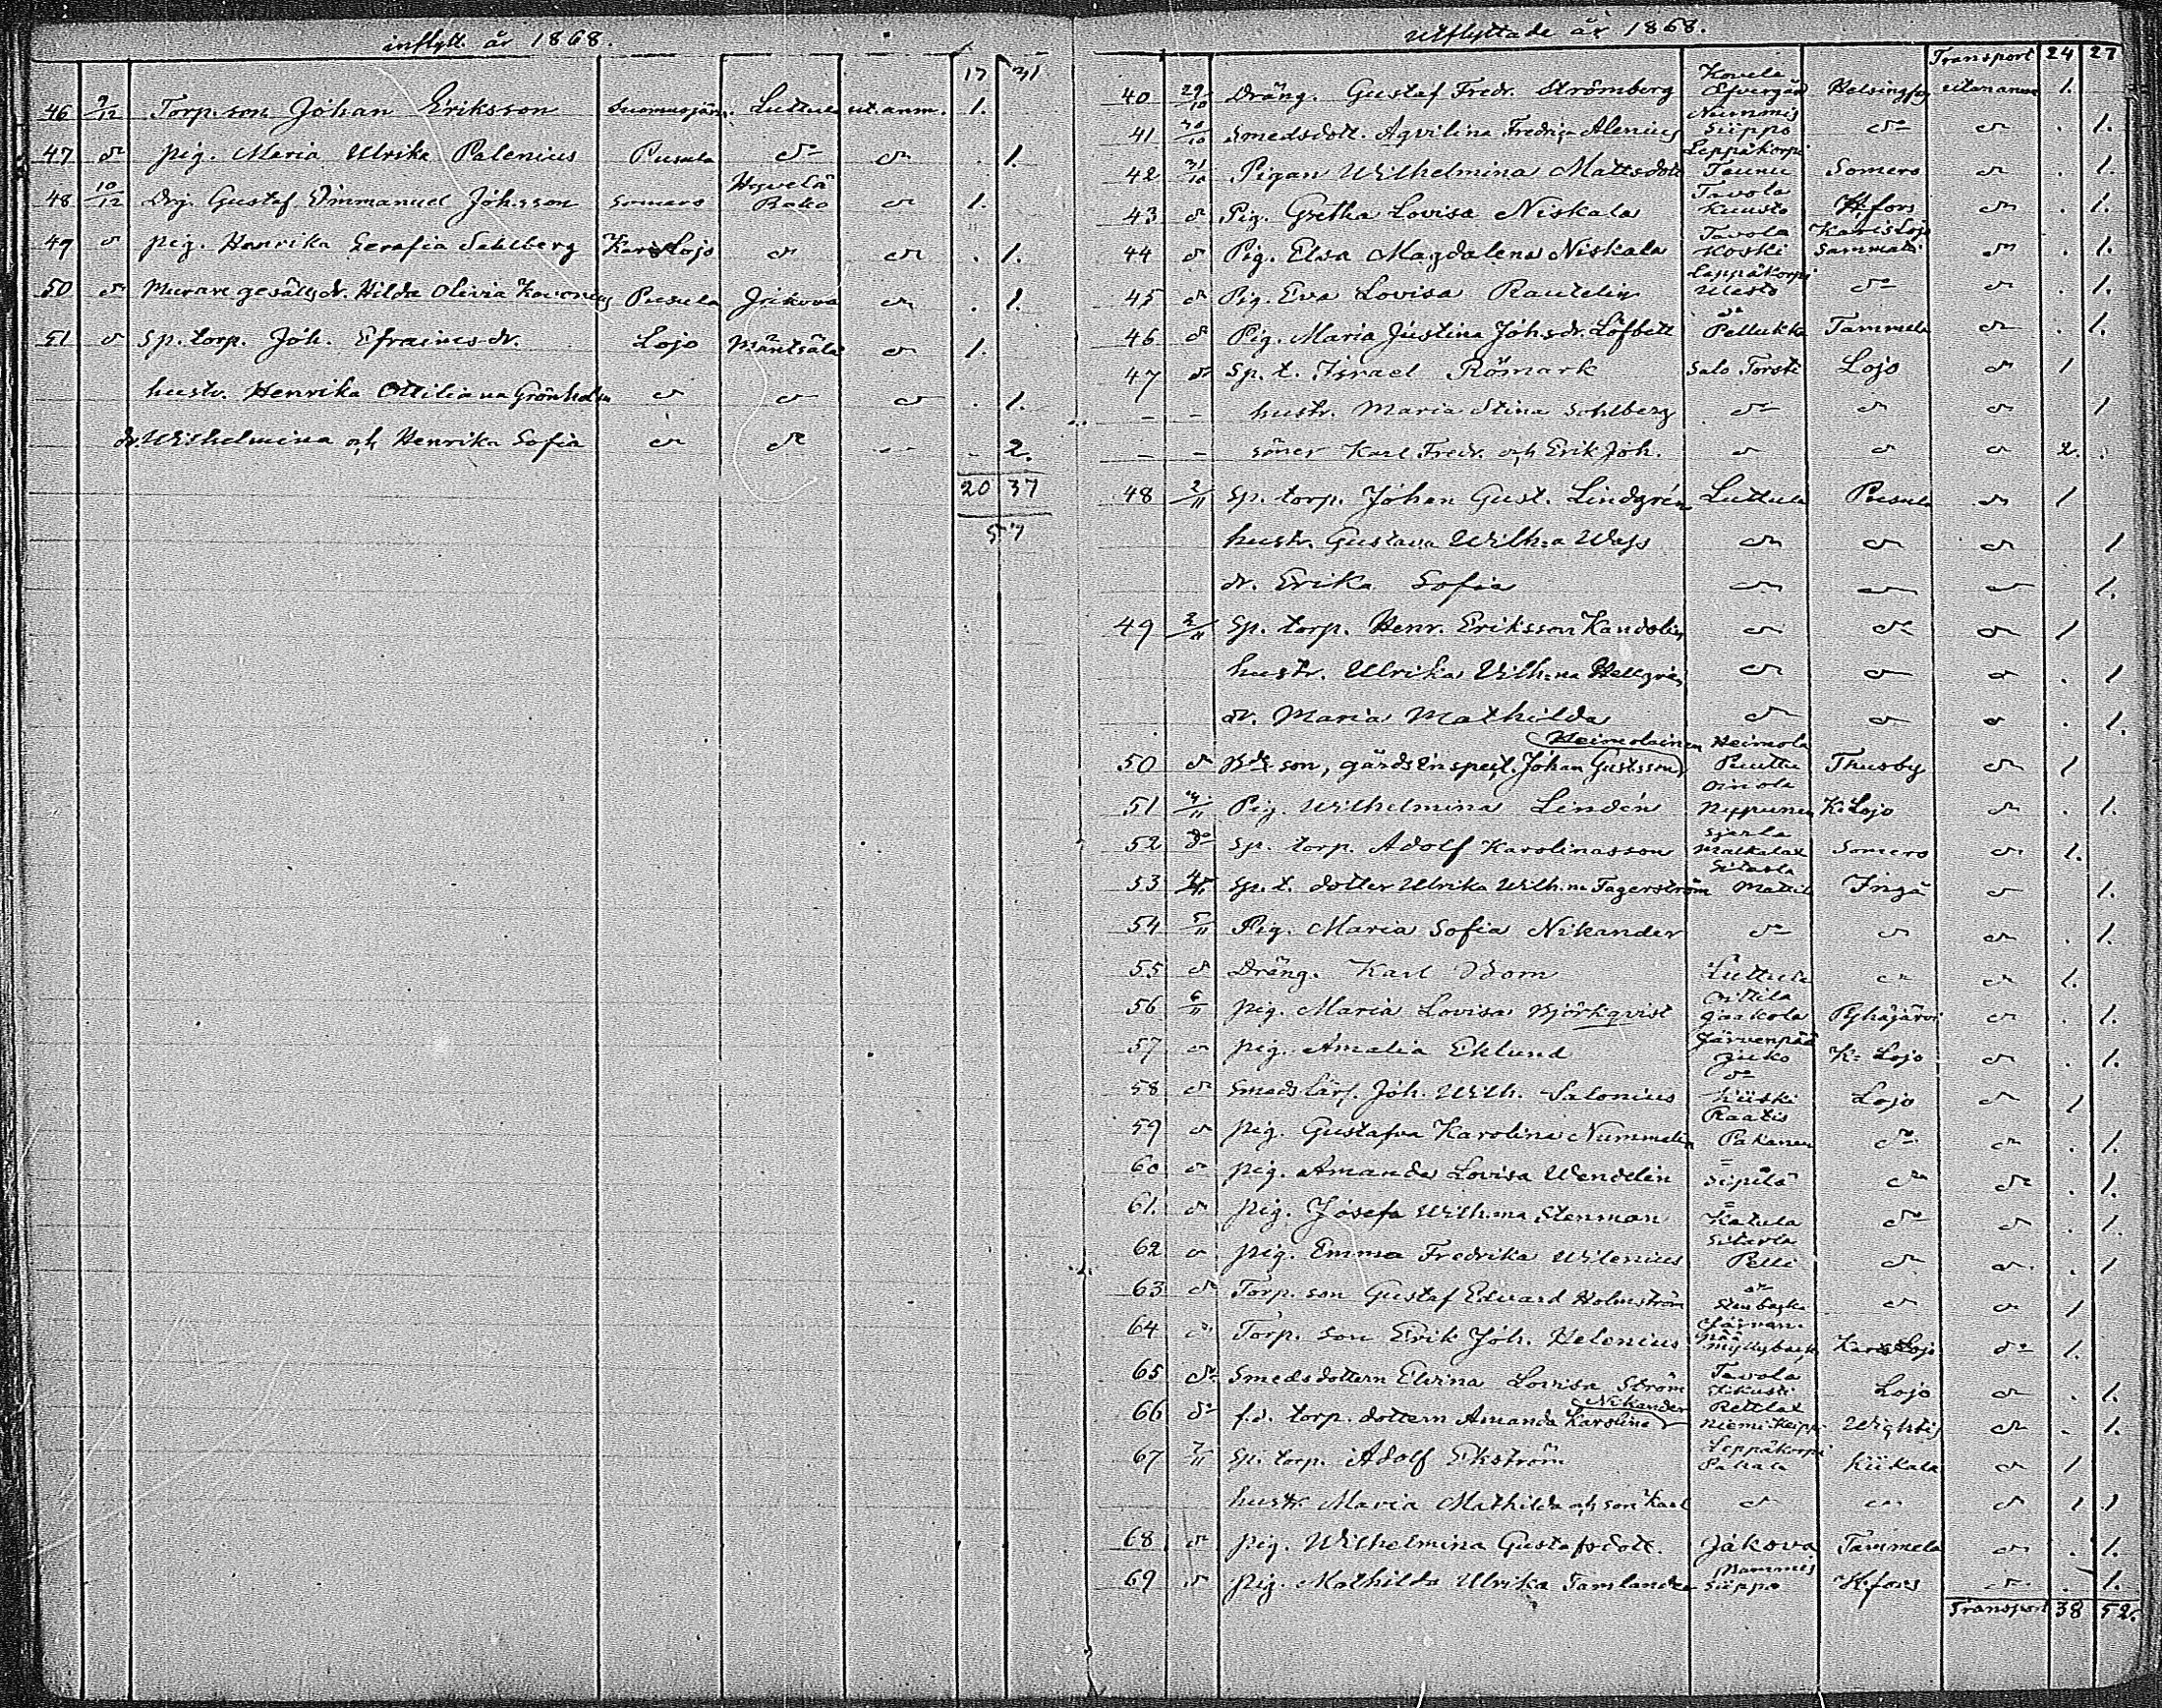 inflytt. år 1868.
17 31
46 9/12 Torp.son Johan Eriksson Suomusjärvi Luttula ut. anm. 1.
47 do pig. Maria Ulrika Palenius Pusula do do . 1.
48 10/12 Drg. Gustaf Emmanuel Johsson Somero do 1.
49 do pig. Henrika Serafia Sahlberg Karis Lojo do do . 1.
50 do Murare gesälls dr. Hilda Olivia Pusula do . 1.
51 do Sp. torp. Joh. Efraims dr. Lojo Mäntsälä do 1.
hustr. Henrika Ottiliana Grönholm do do do . 1.
dr. Wilhelmina och Henrika Sofia do do 2.
20 37
57
Utflyttade år 1868.
Transport 24 27
40 29/10 Dräng. Gustaf Fredr. Strömberg Helsingfrs utan anm 1.
41 30/10 Smedsdott. Aqvilina Fredrika Alenius Nummis Siippo do do . 1.
42 31/10 Pigan Wilhelmina Mattsdott Leppäkorpi Somero do . 1.
43 do Pig. Gretha Lovisa Niskala Tavola Kuusto H:fors do . 1.
44 do Pig. Elsa Magdalena Niskala Tavola Koski Karis Lojo Sammatti do . 1.
45 do Pig. Eva Lovisa Rautelin Leppäkorpi do do . 1.
46 do Pig. Maria Justina Johsdr. Löfbett do Pellukka Tammela do . 1.
47 do Sp. t. Israel Römark Salo Torsti Lojo do 1
- - hustr. Maria Stina Sohlberg do do do 1
- - söner Karl Fredr. och Erik Joh. do do do 2.
48 2/11 Sp. torp. Johan Gust. Lindgrén Luttula Pusula do 1
hustr. Gustava Wilh:a do do do 1
dr. Erika Sofia do do do 1.
49 2/11 Sp. torp. Henr. Eriksson Kandolin do do do 1
hustr. Ulrika Vilh:na Hellgrén do do do . 1
dr. Maria Mathilda do do do . 1.
Heimolainen Heimola
50 do son, gårdsinspekt. Johan Gustsson Thusby do 1
51 Pig. Wilhelmina Lindén Oinola Nyppunen K:Lojo do . 1.
52 do Sp. torp. Adolf Karolinasson Somero do 1.
53 Sp. t. dotter Ulrika Wilh:na Fagerström Sitarla Mattila Ingå do 1.
54 5/11 Pig. Maria Sofia Nikander do do do . 1.
55 do Dräng. Karl Bom Luttula do do 1.
56 6/11 pig. Maria Lovisa Björkqvist Pyhäjärvi do . 1.
57 do pig. Amalia Eklund Järvenpää K: Lojo do . 1.
58 do Smeds lärl. Joh. Wilh. Salonius do Lojo do 1
59 do pig. Gustafva Karolina Nummelin Raatis Pakanen do do . 1.
60 do pig. Amanda Lovisa Wendelin Sipilä do do . 1.
61. do pig. Josefa Wilh:ma Stenman Katula do do . 1.
62 do pig. Emma Fredrika Wilenius Sitarla Pelli do do . 1
63 do Torp. son Gustaf Edvard Holmström do Stenbacka do do 1
64 do Torp. son Erik Joh. Helenius Karis Lojo do 1.
65 do Smedsdottern Elvina Lovisa Ström Tavola Lojo do . 1.
66 do f.d. torp. dottern Amanda Karolina Nikander Retlax Wichtis do . 1.
67 7/11 Sp. torp. Adolf Ekström Leppäkorpi Kiikala do 1
hustr. Maria Mathilda och son Karl do do do 1 1
68 do pig. Wilhelmina Gustafsdott. Jakova Tammela do . 1.
69 do pig. Mathilda Ulrika Tamlander Nummis Siippo H:fors do . 1.
Transport 38 52.